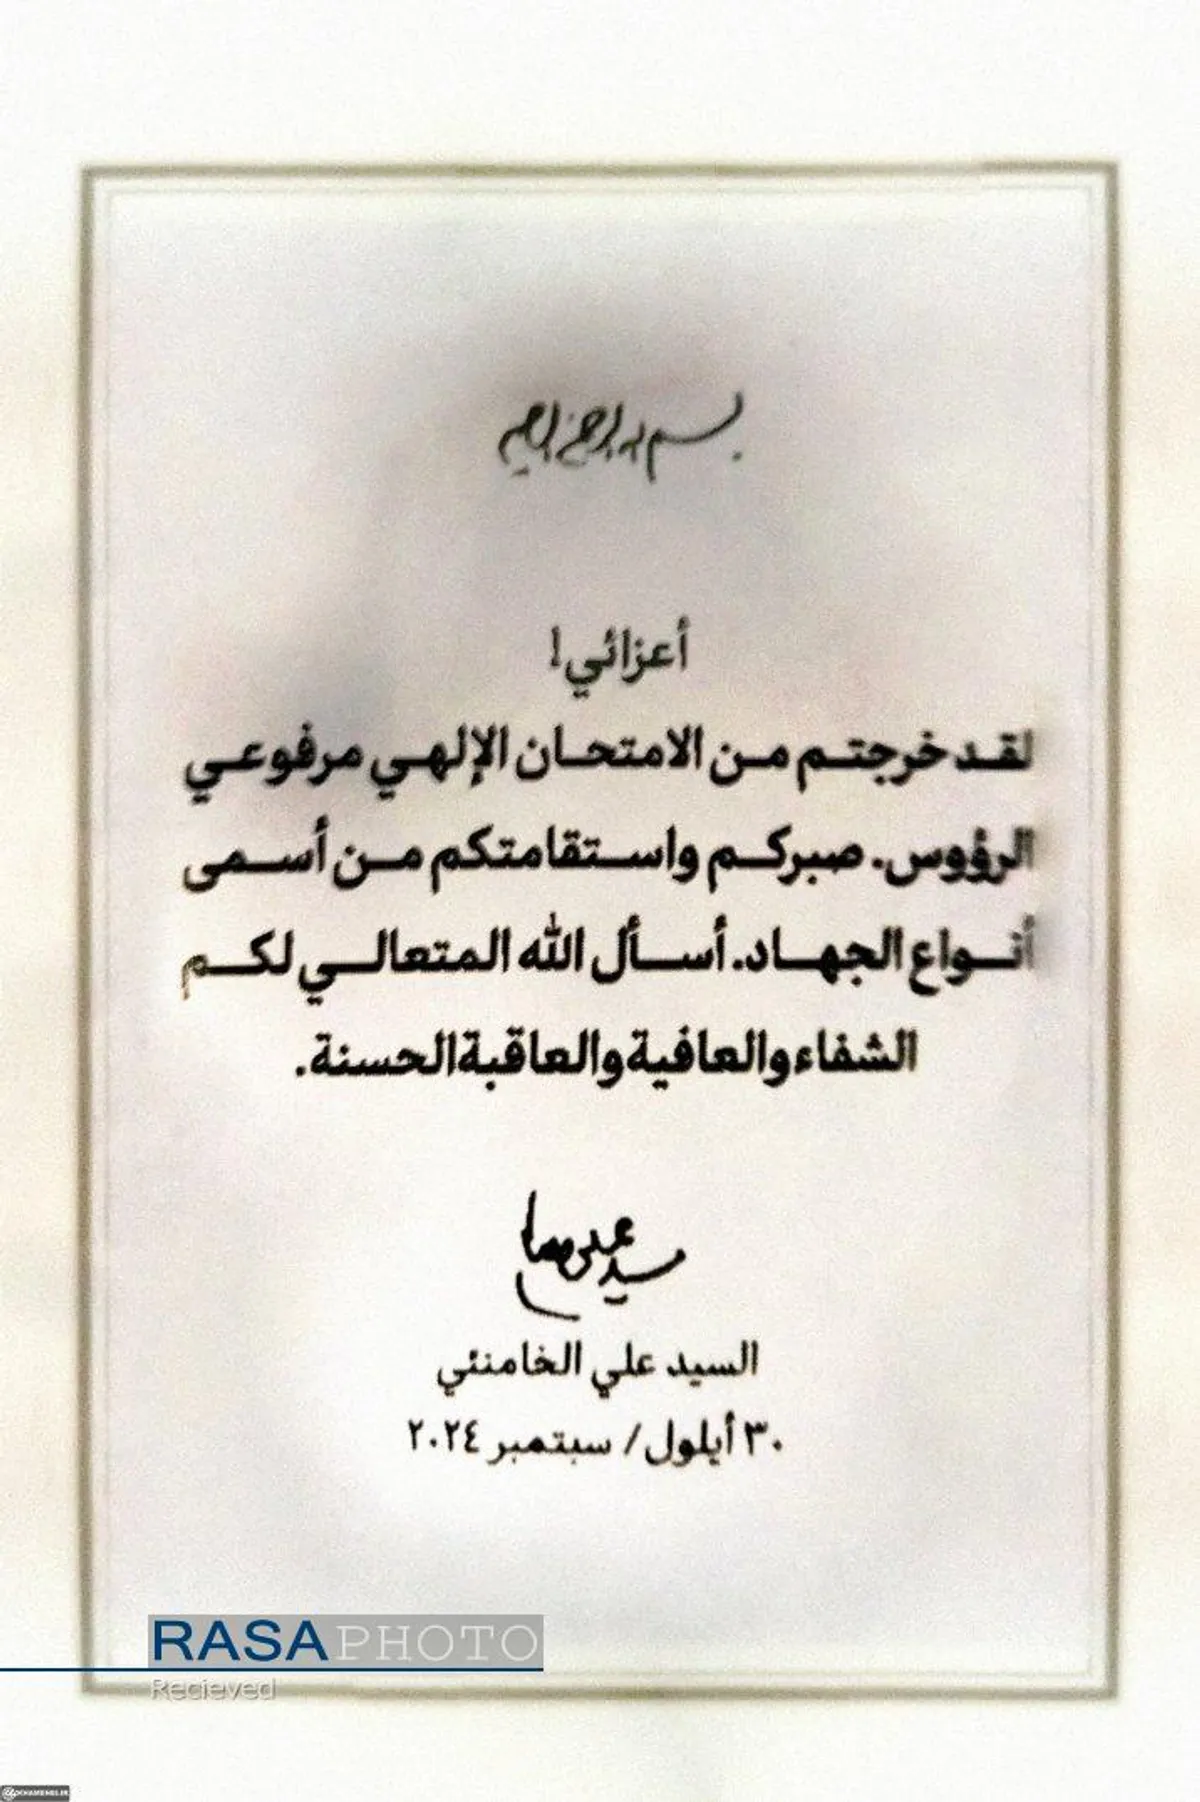 بسم الله الرحمن الرحيم
أعزائي!
لقد خرجتم من الامتحان الإلهي مرفوعي
الرؤوس. صبركم واستقامتكم من أسمى
أنواع الجهاد. أسأل الله المتعالي لكم
الشفاء والعافية والعاقبة الحسنة.
السيد علي الخامنئي
٣٠ أيلول/ سبتمبر ٢٠٢٤
RASAPHOTO
Recieved